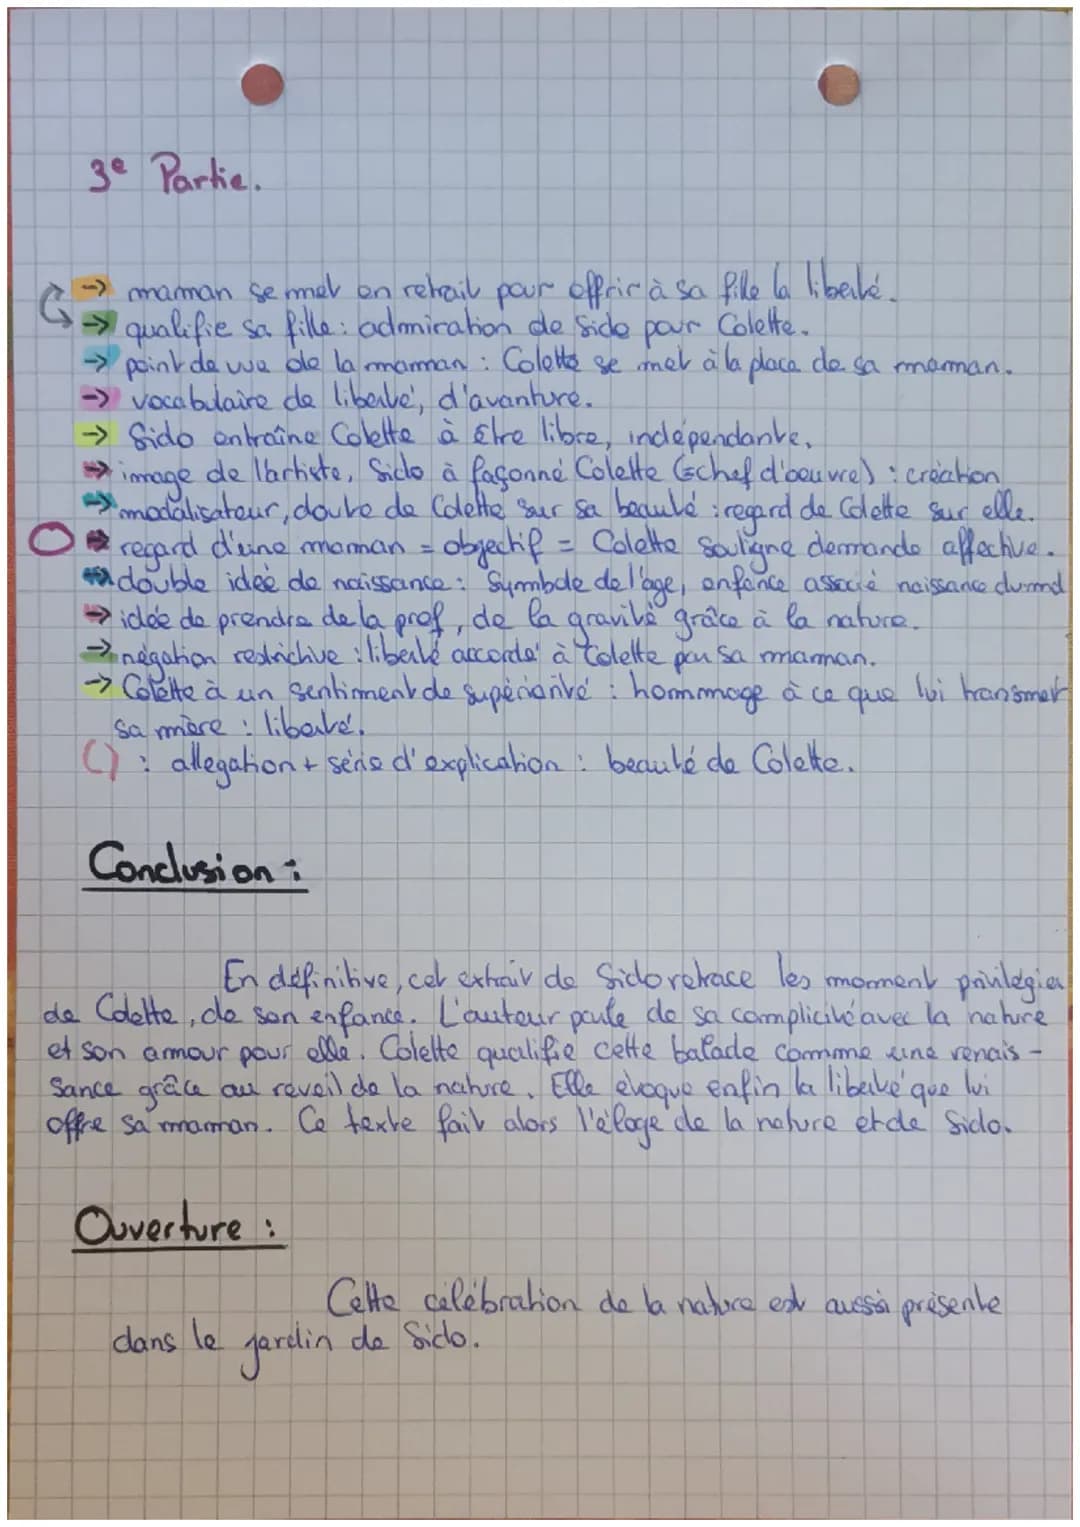 3e Partie.
→ maman se met en retrait pour offrir à sa fille la liberté.
→ qualifie sa fille : admiration de Sido pour Colette.
→ point de vue de la maman : Colette se met à la place de sa maman.
→ vocabulaire de liberté, d'avanture.
→ Sido entraîne Colette à être libre, indépendante.
→ image de l'artiste, Sido à façonné Colette (=chef d'oeuvre) : création
→ modalisateur, doute de Colette sur sa beauté : regard de Colette sur elle.
→ regard d'une maman = objectif = Colette souligne demande affective.
→ double idée de naissance : Symbole de l'âge, enfance associé naissance du
→ idée de prendre de la prof, de la gravité grâce à la nature.
→ négation restrictive : liberté accordé à Colette par sa maman.
→ Colette à un sentiment de supériorité : hommage à ce que lui transmet
sa mère : liberté.
() : allegation + série d'explication : beauté de Colette.
Conclusion :
En définitive, cet extrait de Sido retrace les moment privilégier
de Colette, de son enfance. L'auteur parle de sa complicité avec la nature
et son amour pour elle. Colette qualifie cette balade comme une renais-
sance grâce au réveil de la nature. Elle évoque enfin la liberté que lui
offre sa maman. Ce texte fait alors l'éloge de la nature et de Sido.
Ouverture :
Cette célébration de la nature est aussi présente
dans le jardin de Sido.